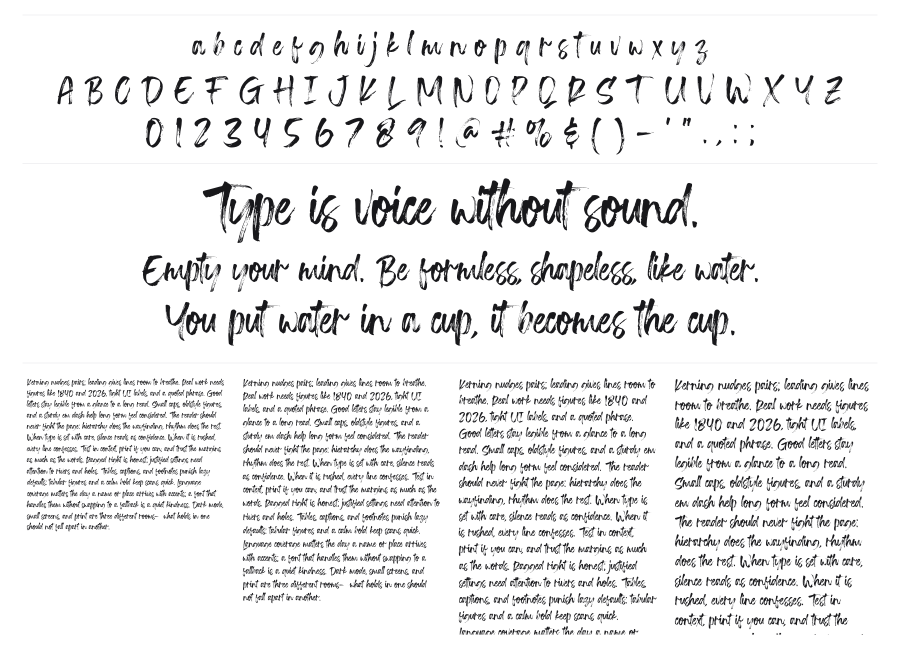 a b c d e f g h i j k l m n o p q r s t u v w x y z
A B C D E F G H I J K L M N O P Q R S T U V W X Y Z
0 1 2 3 4 5 6 7 8 9 ! @ # % & ( ) - ' " . , : ;
Type is voice without sound.
Empty your mind. Be formless, shapeless, like water.
You put water in a cup, it becomes the cup.
Kerning nudges pairs; leading gives lines room to breathe. Real work needs
figures like 1840 and 2026, tight UI labels, and a quoted phrase. Good
letters stay legible from a glance to a long read. Small caps, oldstyle figures,
and a sturdy em dash help long form feel considered. The reader should
never fight the page: hierarchy does the wayfinding, rhythm does the rest.
When type is set with care, silence reads as confidence. When it is rushed,
every line confesses. Test in context, print if you can, and trust the margins
as much as the words. Ragged right is honest; justified settings need
attention to rivers and holes. Tables, captions, and footnotes punish lazy
defaults; tabular figures and a calm bold keep scans quiet. Language
coverage matters the day a name or place arrives with accents; a font that
handles them without swapping to a fallback is a quiet kindness. Dark mode,
small screens, and print are three different rooms— what holds in one
should not fall apart in another.
Kerning nudges pairs; leading gives lines room to breathe.
Real work needs figures like 1840 and 2026, tight UI
labels, and a quoted phrase. Good letters stay legible from a
glance to a long read. Small caps, oldstyle figures, and a
sturdy em dash help long form feel considered. The reader
should never fight the page: hierarchy does the wayfinding,
rhythm does the rest. When type is set with care, silence reads
as confidence. When it is rushed, every line confesses. Test in
context, print if you can, and trust the margins as much as the
words. Ragged right is honest; justified settings need attention to
rivers and holes. Tables, captions, and footnotes punish lazy
defaults; tabular figures and a calm bold keep scans quiet.
Language coverage matters the day a name or place arrives
with accents; a font that handles them without swapping to a
fallback is a quiet kindness. Dark mode, small screens, and
print are three different rooms— what holds in one should
not fall apart in another.
Kerning nudges pairs; leading gives lines room to
breathe. Real work needs figures like 1840 and
2026, tight UI labels, and a quoted phrase.
Good letters stay legible from a glance to a long
read. Small caps, oldstyle figures, and a sturdy em
dash help long form feel considered. The reader
should never fight the page: hierarchy does the
wayfinding, rhythm does the rest. When type is
set with care, silence reads as confidence. When it
is rushed, every line confesses. Test in context,
print if you can, and trust the margins as much
as the words. Ragged right is honest; justified
settings need attention to rivers and holes. Tables,
captions, and footnotes punish lazy defaults; tabular
figures and a calm bold keep scans quiet.
Language coverage matters the day a name or
Kerning nudges pairs; leading gives lines
room to breathe. Real work needs figures
like 1840 and 2026, tight UI labels,
and a quoted phrase. Good letters stay
legible from a glance to a long read.
Small caps, oldstyle figures, and a sturdy
em dash help long form feel considered.
The reader should never fight the page:
hierarchy does the wayfinding, rhythm
does the rest. When type is set with care,
silence reads as confidence. When it is
rushed, every line confesses. Test in
context, print if you can, and trust the